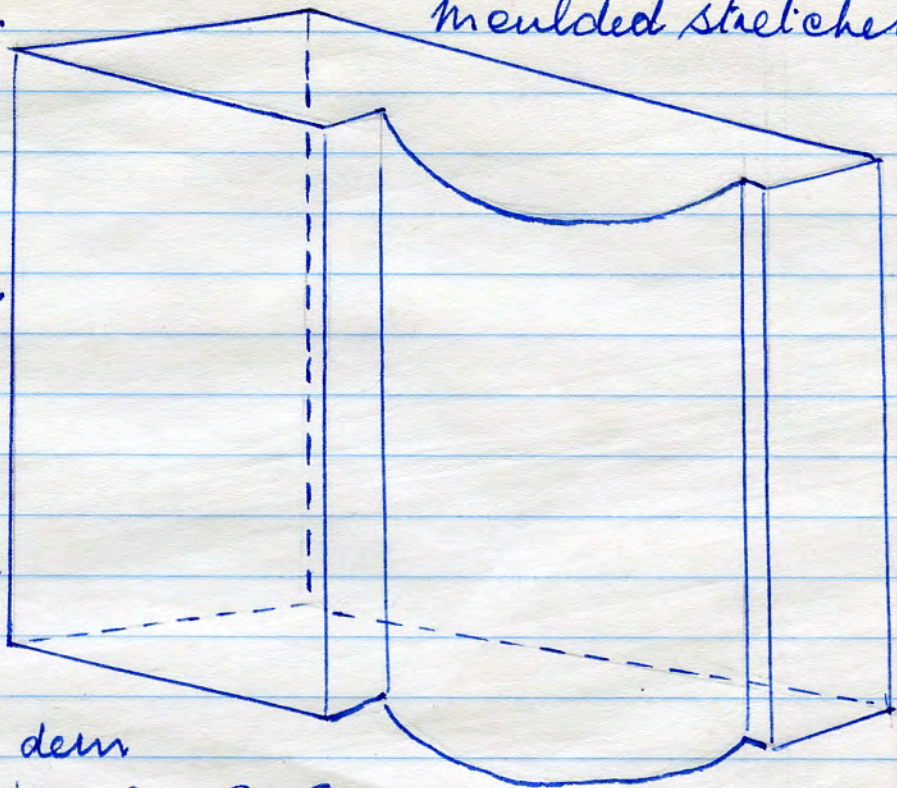 moulded stretcher
dem